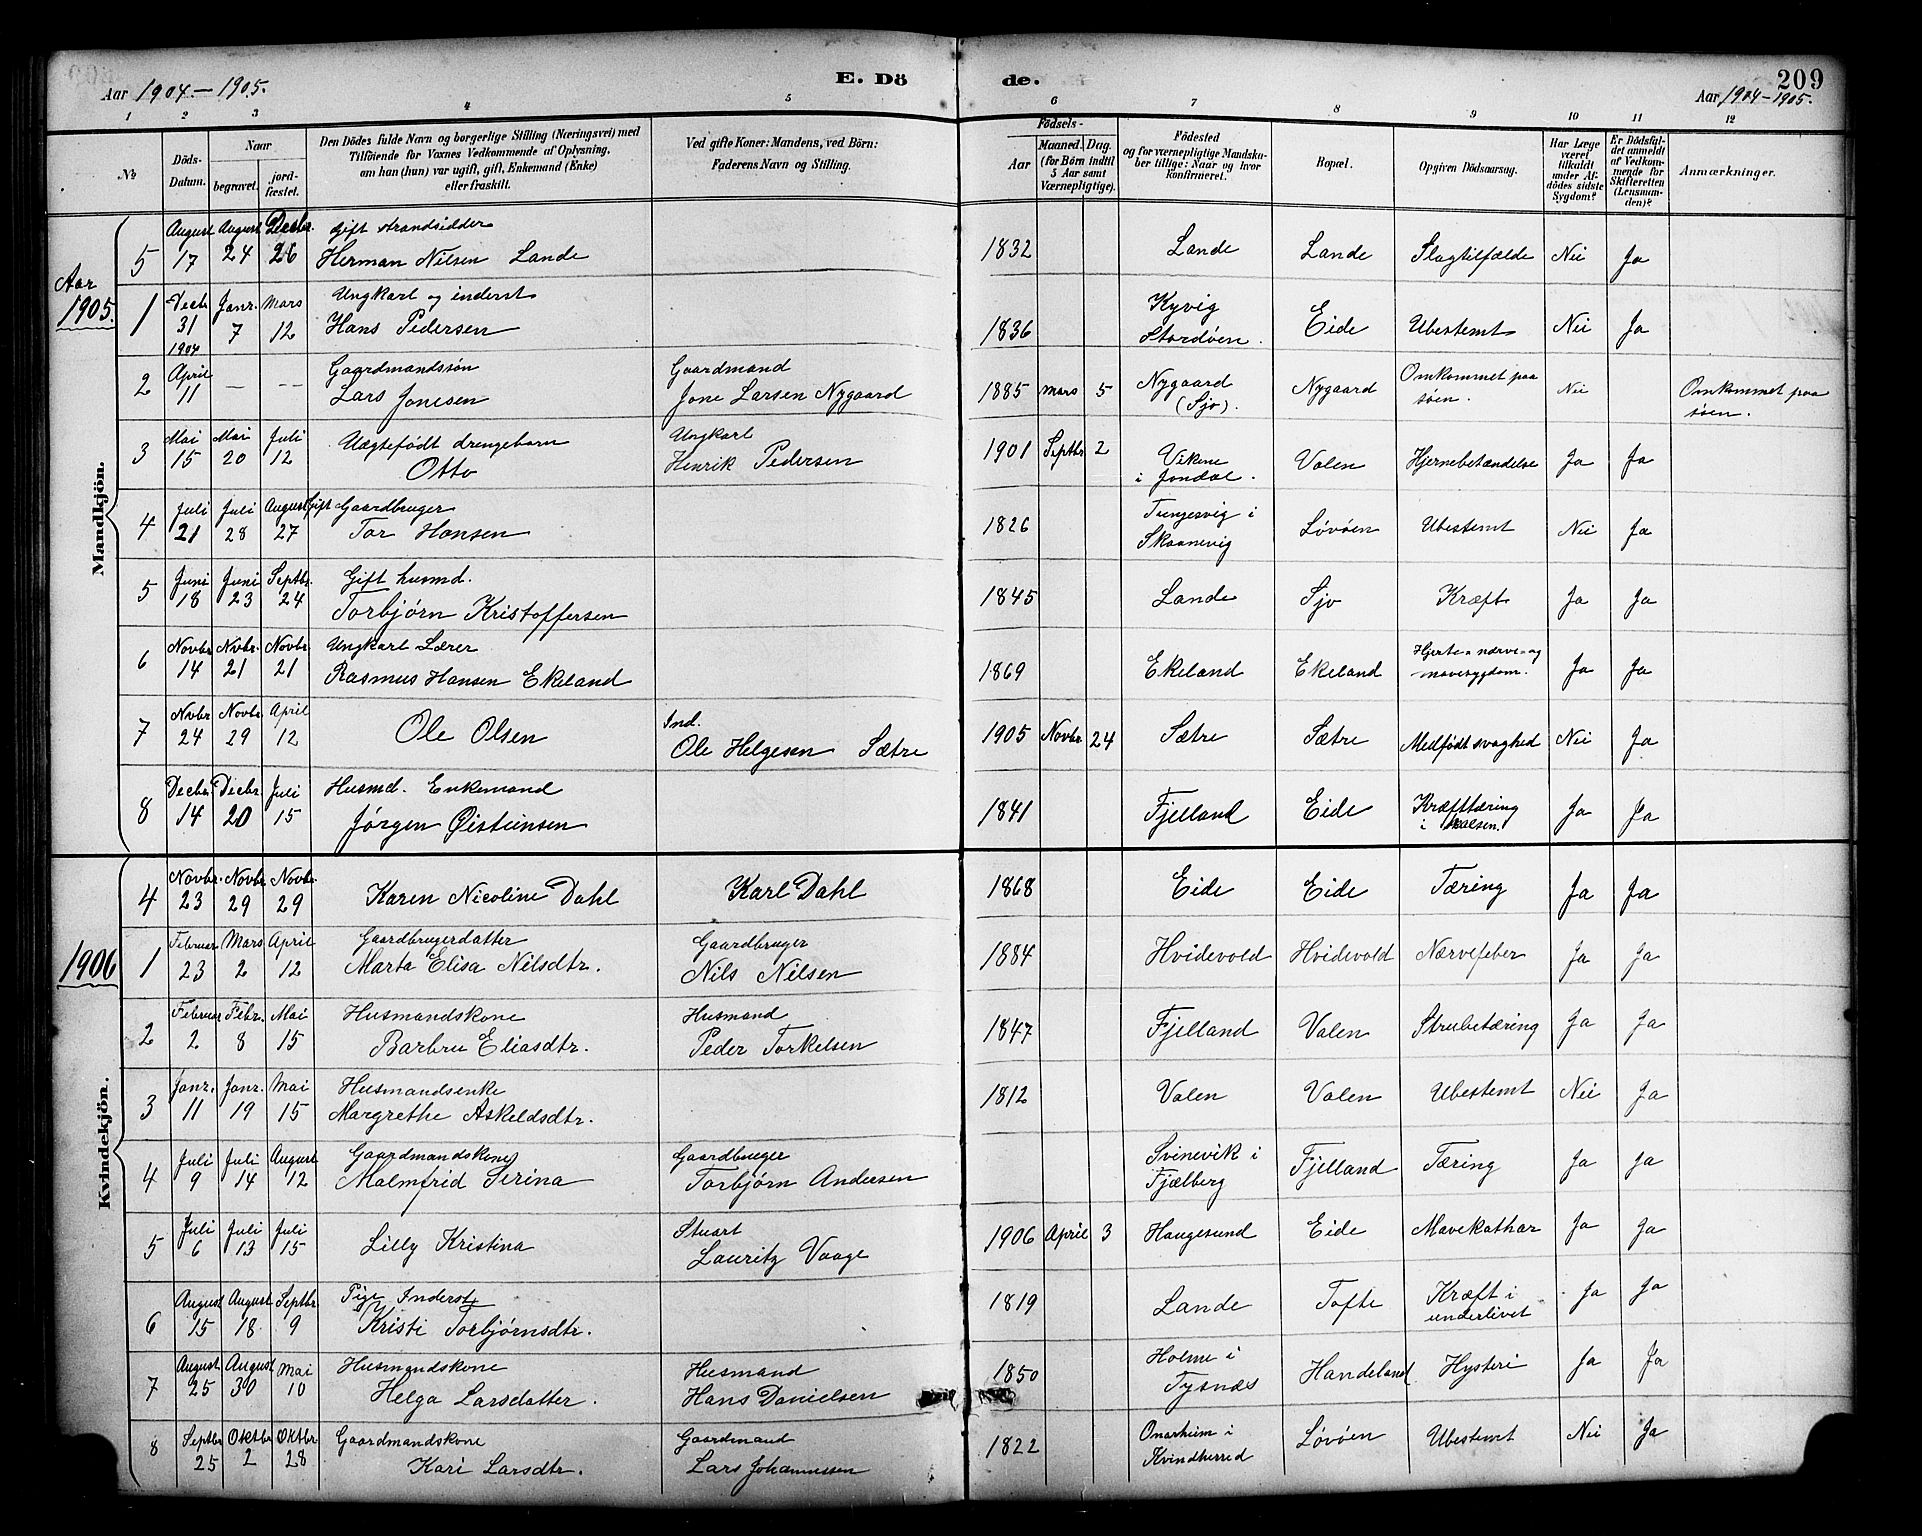 Aar 1904–1905.
E. Dö
de.
209
Aar 1904–1905.
1 2 3 4 5 6 7 8 9 10 11 12
№
Döds-Datum.
Naar
begravet.
jord-fæstet.
Den Dödes fulde Navn og borgerlige Stilling (Næringsvei) med
Tilföiende for Voxnes Vedkommende af Oplysning,
om han (hun) var ugift, gift, Enkemand (Enke)
eller fraskilt.
Ved gifte Koner: Mandens, ved Börn:
Faderens Navn og Stilling.
Födsels-
Aar
Maaned. Dag.
(for Börn indtil
5 Aar samt
Værnepligtige).
Födested
og for værnepligtige Mandska-
ber tillige: Naar og hvor
konfirmeret.
Bopæl.
Opgiven Dödsaarsag.
Har Læge
været
tilkaldt
under Af-
dödes sidste
Sygdom?
Er Dödsfal-
det anmeldt
af Vedkom-
mende for
Skifteretten
(Lensman-
den)?
Anmærkninger.
Mandkjön.
5 August 17 August 24 Decbr. 26 Gift strandsidder
Herman Nilsen Lande 1832 Lande Lande Slagtilfælde Nei Ja
Aar
1905.
1 Decbr 31 1904 Janr. 7 Mars 12 Ungkarl og inderst
Hans Pedersen 1836 Kyvig
Stordøen. Eide Ubestemt Nei Ja
2 April 11 — -- Gaardmandssøn
Lars Jonesen Gaardmand
Jone Larsen Nygaard 1885 Mars 5 Nygaard
(Sjo). Nygaard Omkommet paa
søen. Nei Omkommet paa
søen.
3 Mai 15 Mai 20 Juli 12 Uægtefødt drengebarn
Otto Ungkarl
Henrik Pedersen 1901 Septbr 2 Vikene
i Jondal. Valen Hjernebetændelse Ja Ja
4 Juli 21 Juli 28 August 27 Gift Gaardbruger
Tor Hansen 1826 Tungesvig i
Skaanevig Løvøen Ubestemt Nei Ja
5 Juni 18 Juni 23 Septbr. 24 Gift husmd.
Torbjørn Kristoffersen 1845 Lande Sjo Kræft Ja Ja
6 Novbr 14 Nvbr. 21 Novbr. 21 Ungkarl Lærer
Rasmus Hansen Ekeland 1869 Ekeland Ekeland Hjerte- nærve- og
mavesygdom. Ja Ja
7 Nvbr 24 Novbr. 29 April 12 Ole Olsen Ind.
Ole Helgesen Sætre 1905 Novbr 24 Sætre Sætre Medfødt svaghed Nei Ja
8 Decbr. 14 Decbr. 20 Juli 15 Husmd. Enkemand
Jørgen Øisteinsen 1841 Fjelland Eide Kræfttæring
i halsen. Ja Ja
Kvindekjön.
4 Novbr. 23 Novbr. 29 Novbr. 29 Karen Nicoline Dahl Karl Dahl 1868 Eide Eide Tæring Ja Ja
1906
1 Februar 23 Mars 2 April 12 Gaardbrugerdatter
Marta Elisa Nilsdtr. Gaardbruger
Nils Nilsen 1884 Hvidevold Hvidevold Nærvefeber Ja Ja
2 Februar 2 Febr. 8 Mai 15 Husmandskone
Barbru Eliasdtr. Husmand
Peder Torkelsen 1847 Fjelland Valen Strubetæring Ja Ja
3 Janr. 11 Janr. 19 Mai 15 Husmandsenke
Margrethe Askeldsdtr. 1812 Valen Valen Ubestemt Nei Ja
4 Juli 9 Juli 14 August 12 Gaardmandskone
Malmfrid Serina Gaardbruger
Torbjørn Andersen Svinevik i
Fjælberg Fjelland Tæring Ja Ja
5 Juli 6 Juli 13 Juli 15 Lilly Kristina Stuart
Lauritz Vaage 1906 April 3 Haugesund Eide Mavekathar Ja Ja
6 August 15 August 18 Septbr 9 Pige Inderst
Kristi Torbjørnsdtr. 1819 Lande Tofte Kræft i
underlivet Ja Ja
7 August 25 August 30 Mai 10 Husmandskone
Helga Larsdatter. Husmand
Hans Danielsen 1850 Holme i
Tysnæs Handeland Hysteri Ja Ja
8 Septbr 25 Oktbr 2 Oktbr 28 Gaardmandskone
Kari Larsdtr. Gaardmand
Lars Johannessen 1822 Onarheim i
Kvindherred Løvøen Ubestemt Nei Ja